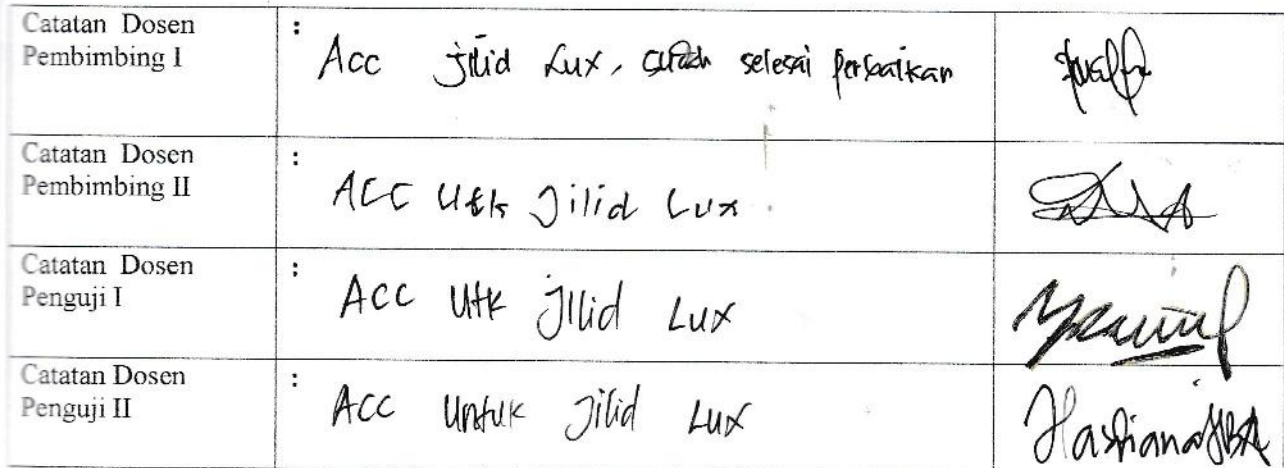 Catatan Dosen
Pembimbing I
:
Acc jilid Lux, sudah selesai perbaikan
Catatan Dosen
Pembimbing II
:
ACC Utk Jilid Lux
Catatan Dosen
Penguji I
:
Acc Utk Jilid Lux
Catatan Dosen
Penguji II
:
Acc Untuk Jilid Lux